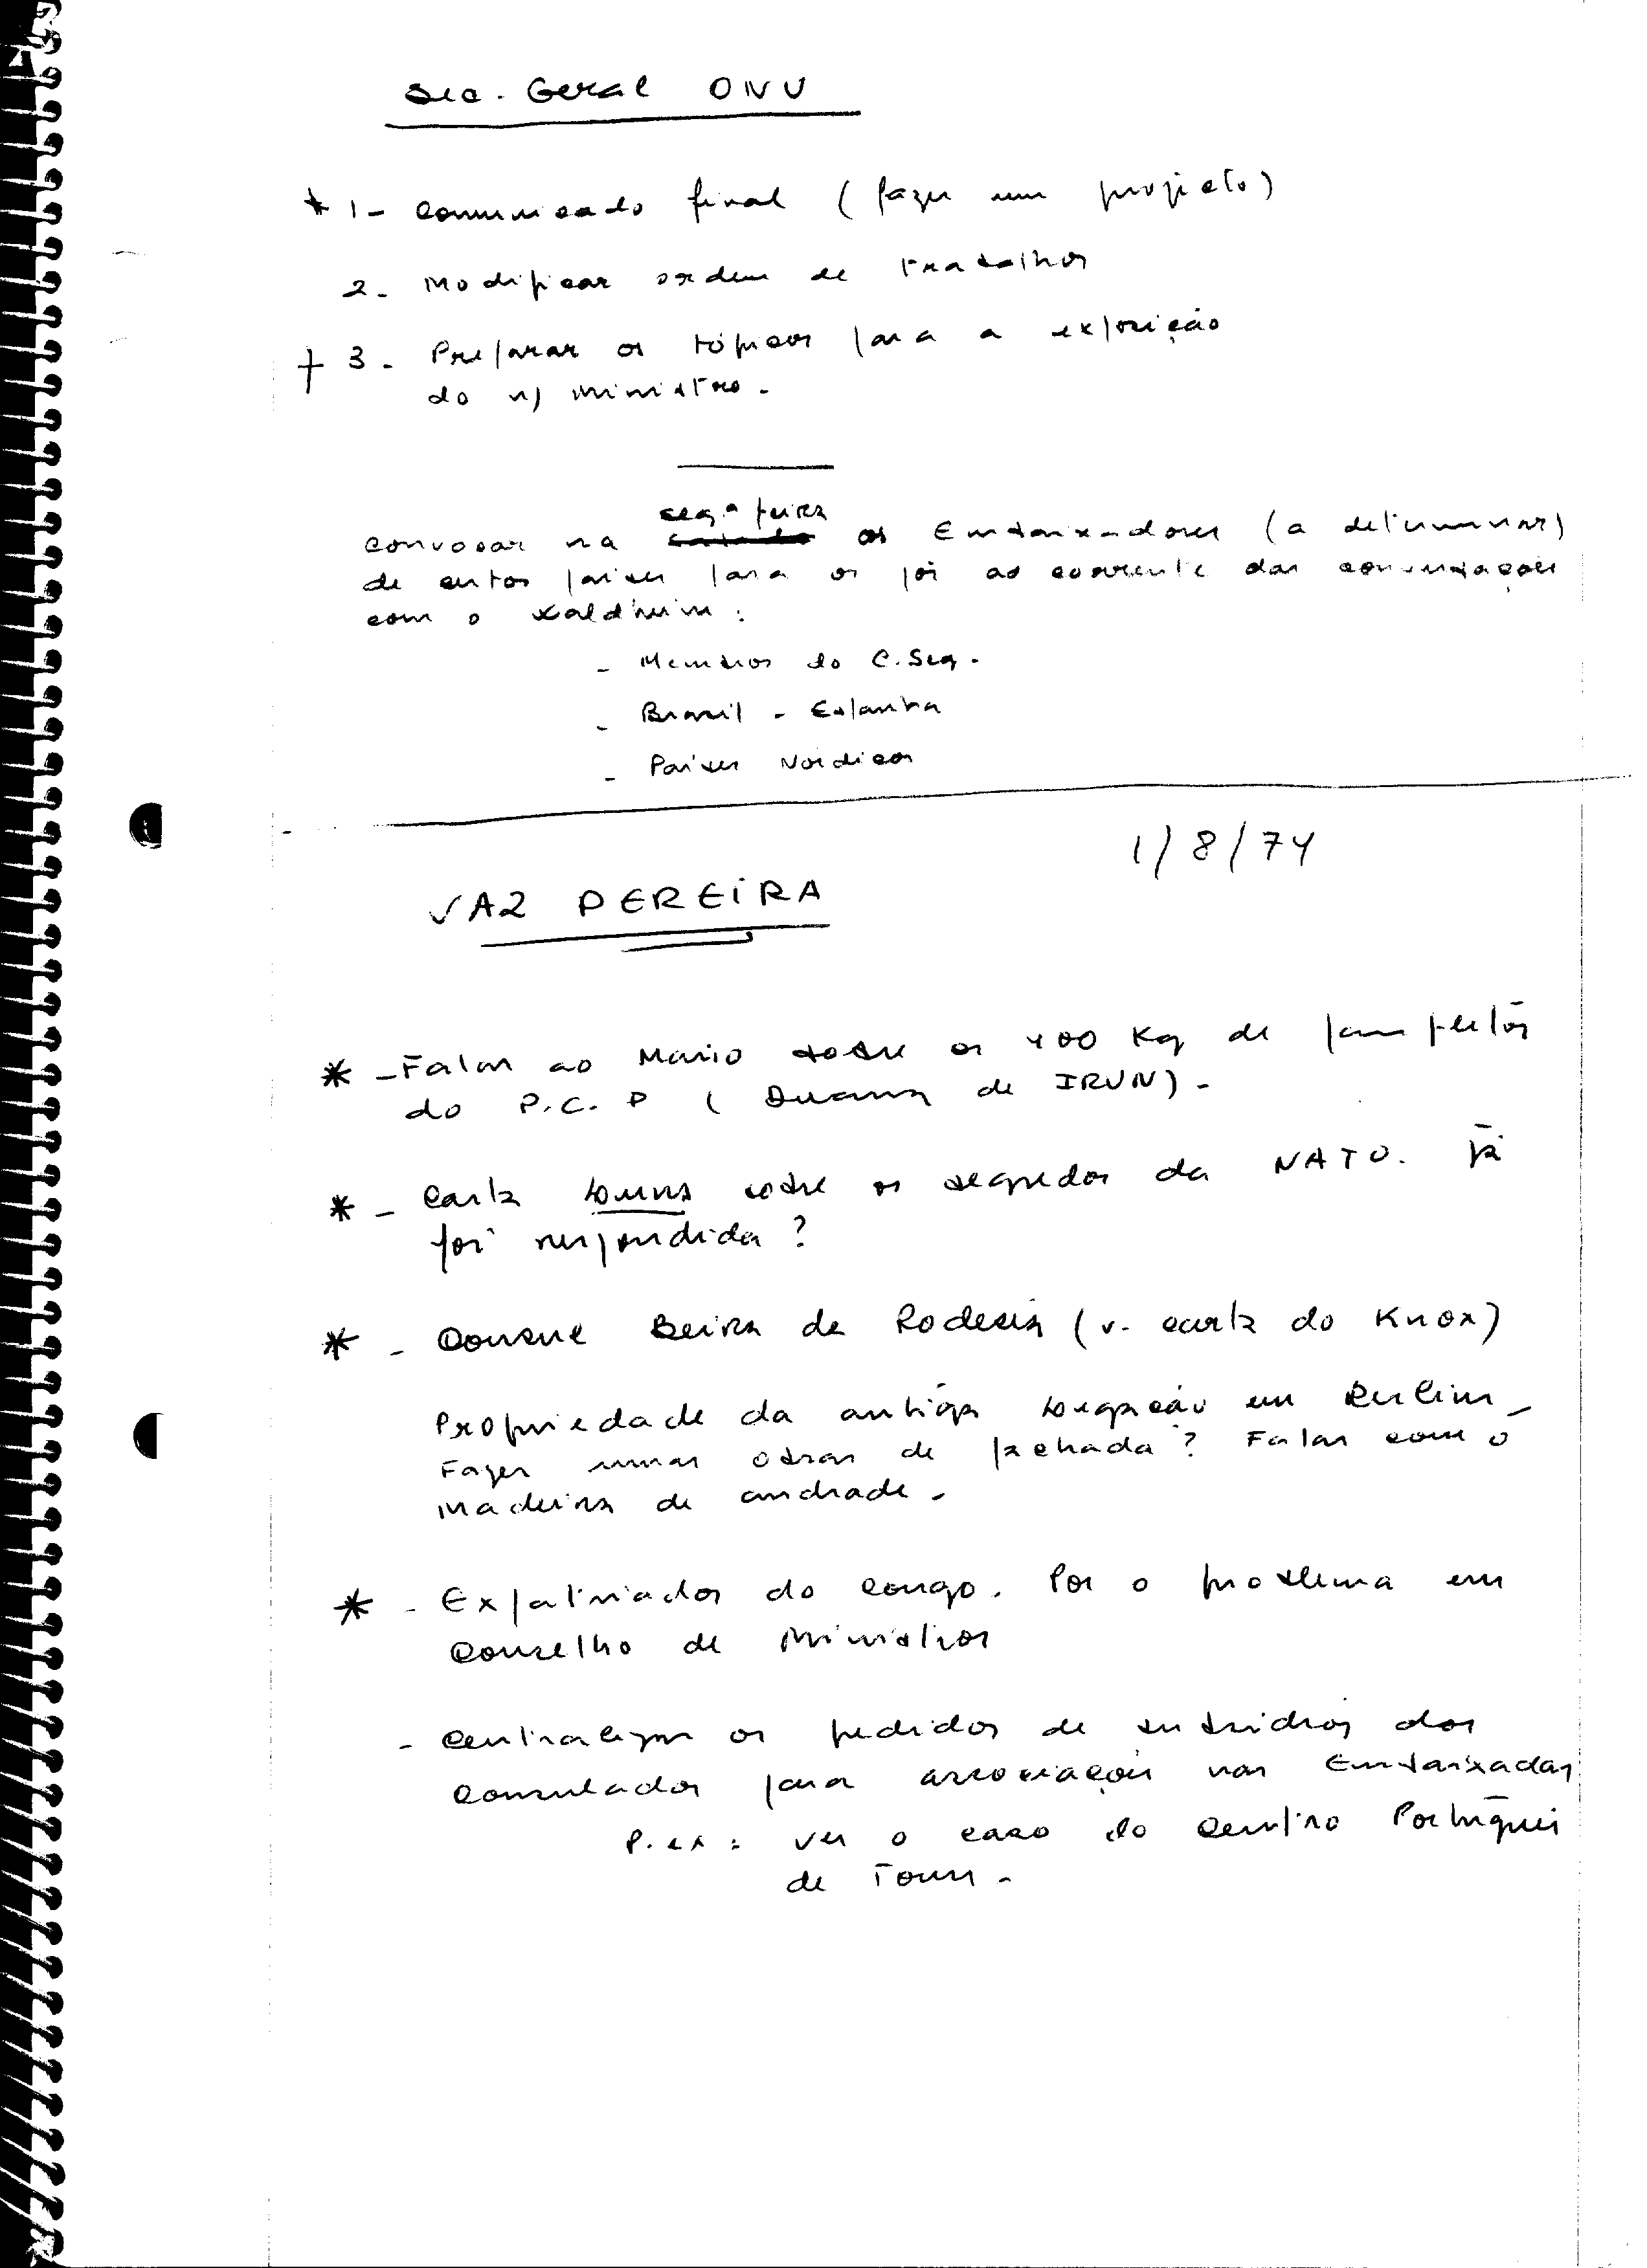 Sec. Geral ONU
* 1 - Comunicado final (fazer um projecto)
2 - Modificar ordem de trabalhos
+ 3 - Preparar os tópicos para a exposição
do n/ Ministro -
seg.ª feira
Convocar na os Embaixadores (a determinar)
de certos países para os pôr ao corrente das conversações
com o Waldheim :
- Membros do C. Seg.
- Brasil - Espanha
- Países Nórdicos
1/8/74
VAZ PEREIRA
* - Falar ao Mario sobre os 400 Kg de panfletos
do P.C.P (Duana de IRUN) -
* - Carta Luns sobre os segredos da NATO. Já
foi respondida?
* - Consul Beira da Rodesia (v. carta do Knox)
Propriedade da antiga Legação em Berlim -
Fazer umas obras de fachada? Falar com o
Madeira de Andrade -
* - Expatriados do Congo. Pôr o problema em
Conselho de Ministros
- Centralizar os pedidos de subsidios dos
Consulados para associações nas Embaixadas
P. ex : ver o caso do Centro Português
de Tours -